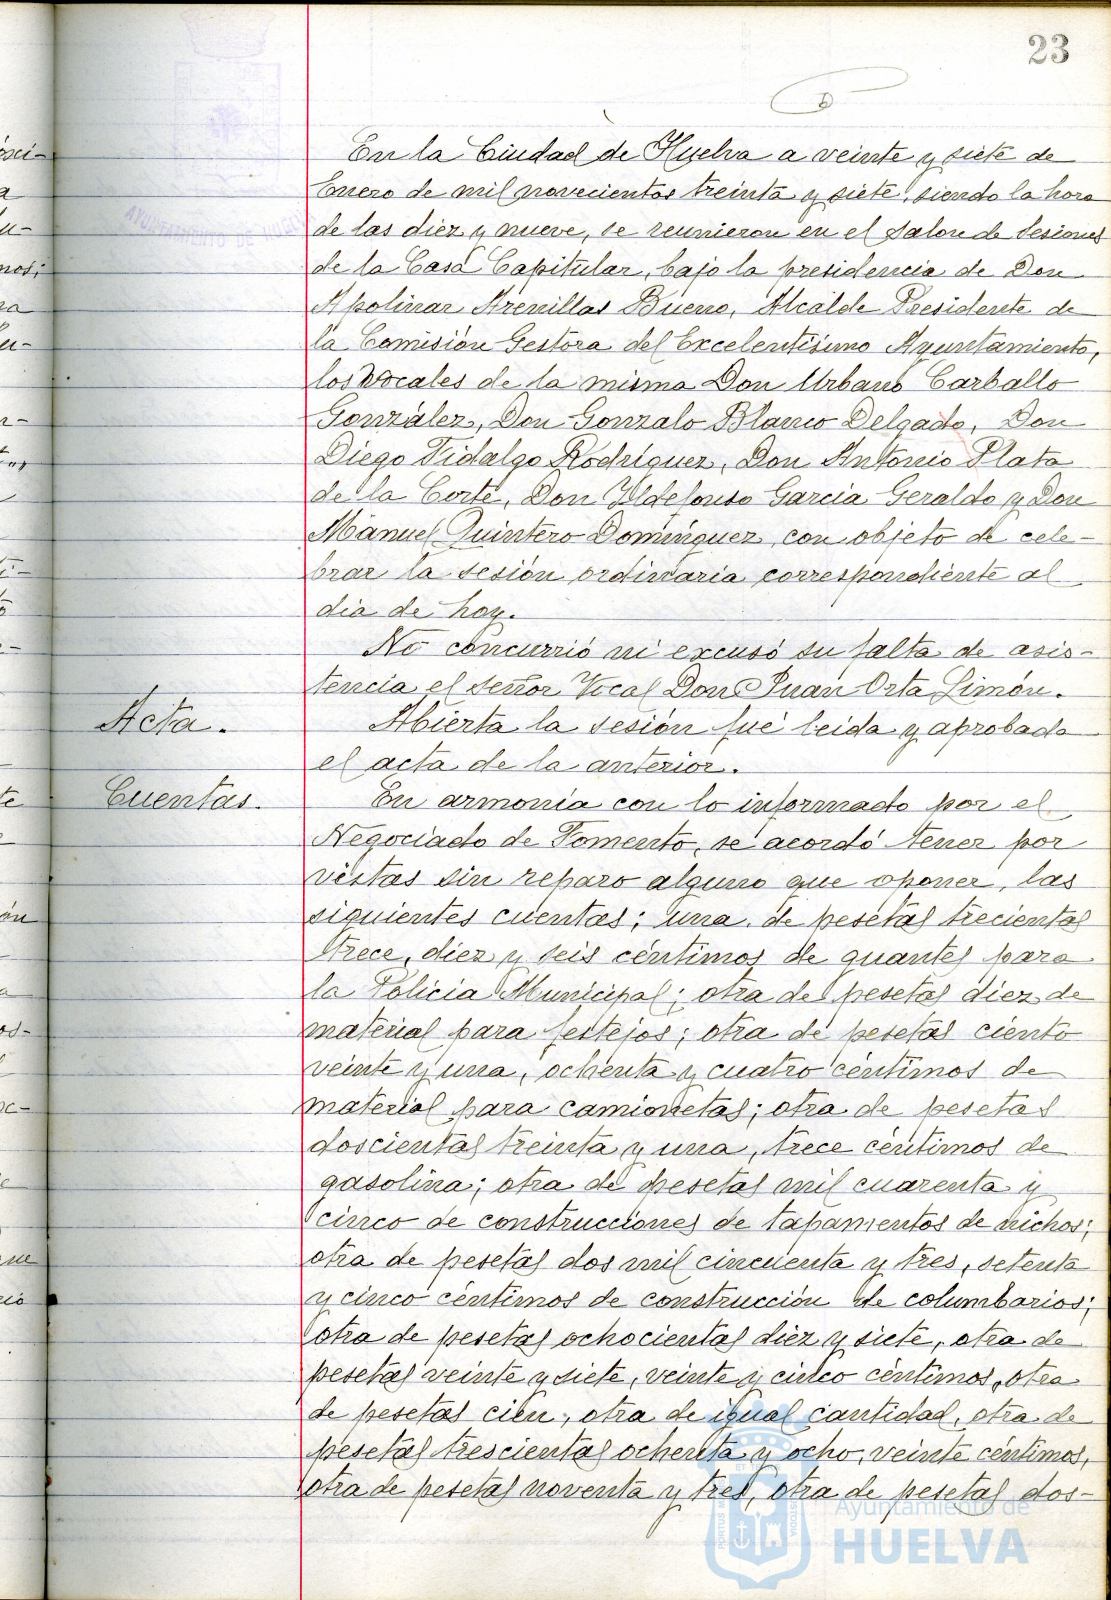 23
En la Ciudad de Huelva a veinte y siete de
Enero de mil novecientos treinta y siete, siendo la hora
de las diez y nueve, se reunieron en el Salon de Sesiones
de la Casa Capitular, bajo la presidencia de Don
Apolinar Arenillas Bueno, Alcalde Presidente de
la Comisión Gestora del Excelentísimo Ayuntamiento,
los Vocales de la misma Don Urbano Carballo
González, Don Gonzalo Blanco Delgado, Don
Diego Fidalgo Rodríguez, Don Antonio Plata
de la Corte, Don Ildefonso García Geraldo y Don
Manuel Quintero Domínguez, con objeto de cele-
brar la sesión ordinaria correspondiente al
dia de hoy.
No concurrió ni excusó su falta de asis-
tencia el señor Vocal Don Juan Orta Limón.
Acta.
Abierta la sesión fué leida y aprobada
el acta de la anterior.
Cuentas.
En armonía con lo informado por el
Negociado de Fomento, se acordó tener por
vistas sin reparo alguno que oponer, las
siguientes cuentas; una de pesetas trecientas
trece, diez y seis céntimos de guantes para
la Policía Municipal; otra de pesetas diez de
material para festejos; otra de pesetas ciento
veinte y una, ochenta y cuatro céntimos de
material para camionetas; otra de pesetas
doscientas treinta y una, trece céntimos de
gasolina; otra de pesetas mil cuarenta y
cinco de construcciones de tapamentos de nichos;
otra de pesetas dos mil cincuenta y tres, setenta
y cinco céntimos de construcción de columbarios;
otra de pesetas ochocientas diez y siete, otra de
pesetas veinte y siete, veinte y cinco céntimos, otra
de pesetas cien, otra de igual cantidad, otra de
pesetas trescientas ochenta y ocho, veinte céntimos,
otra de pesetas noventa y tres, otra de pesetas dos-
AYUNTAMIENTO DE HUELVA
Ayuntamiento de
HUELVA